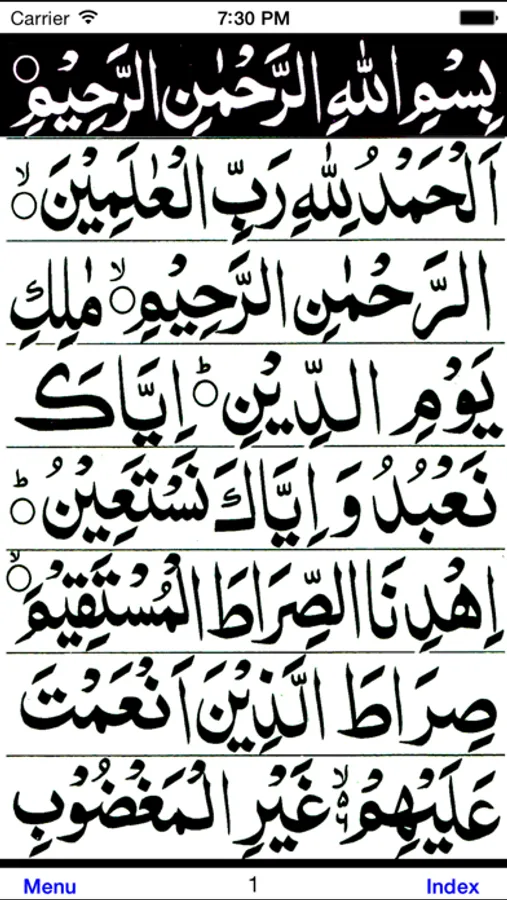 Carrier 7:30 PM
بِسْمِ اللهِ الرَّحْمٰنِ الرَّحِيْمِ ○
اَلْحَمْدُ لِلّٰهِ رَبِّ الْعٰلَمِيْنَ ○ۙ
الرَّحْمٰنِ الرَّحِيْمِ ○ۙ مٰلِكِ
يَوْمِ الدِّيْنِ ○ؕ اِيَّاكَ
نَعْبُدُ وَ اِيَّاكَ نَسْتَعِيْنُ ○ؕ
اِهْدِنَا الصِّرَاطَ الْمُسْتَقِيْمَ ○ۙ
صِرَاطَ الَّذِيْنَ اَنْعَمْتَ
عَلَيْهِمْ ۙ۬ غَيْرِ الْمَغْضُوْبِ
Menu 1 Index